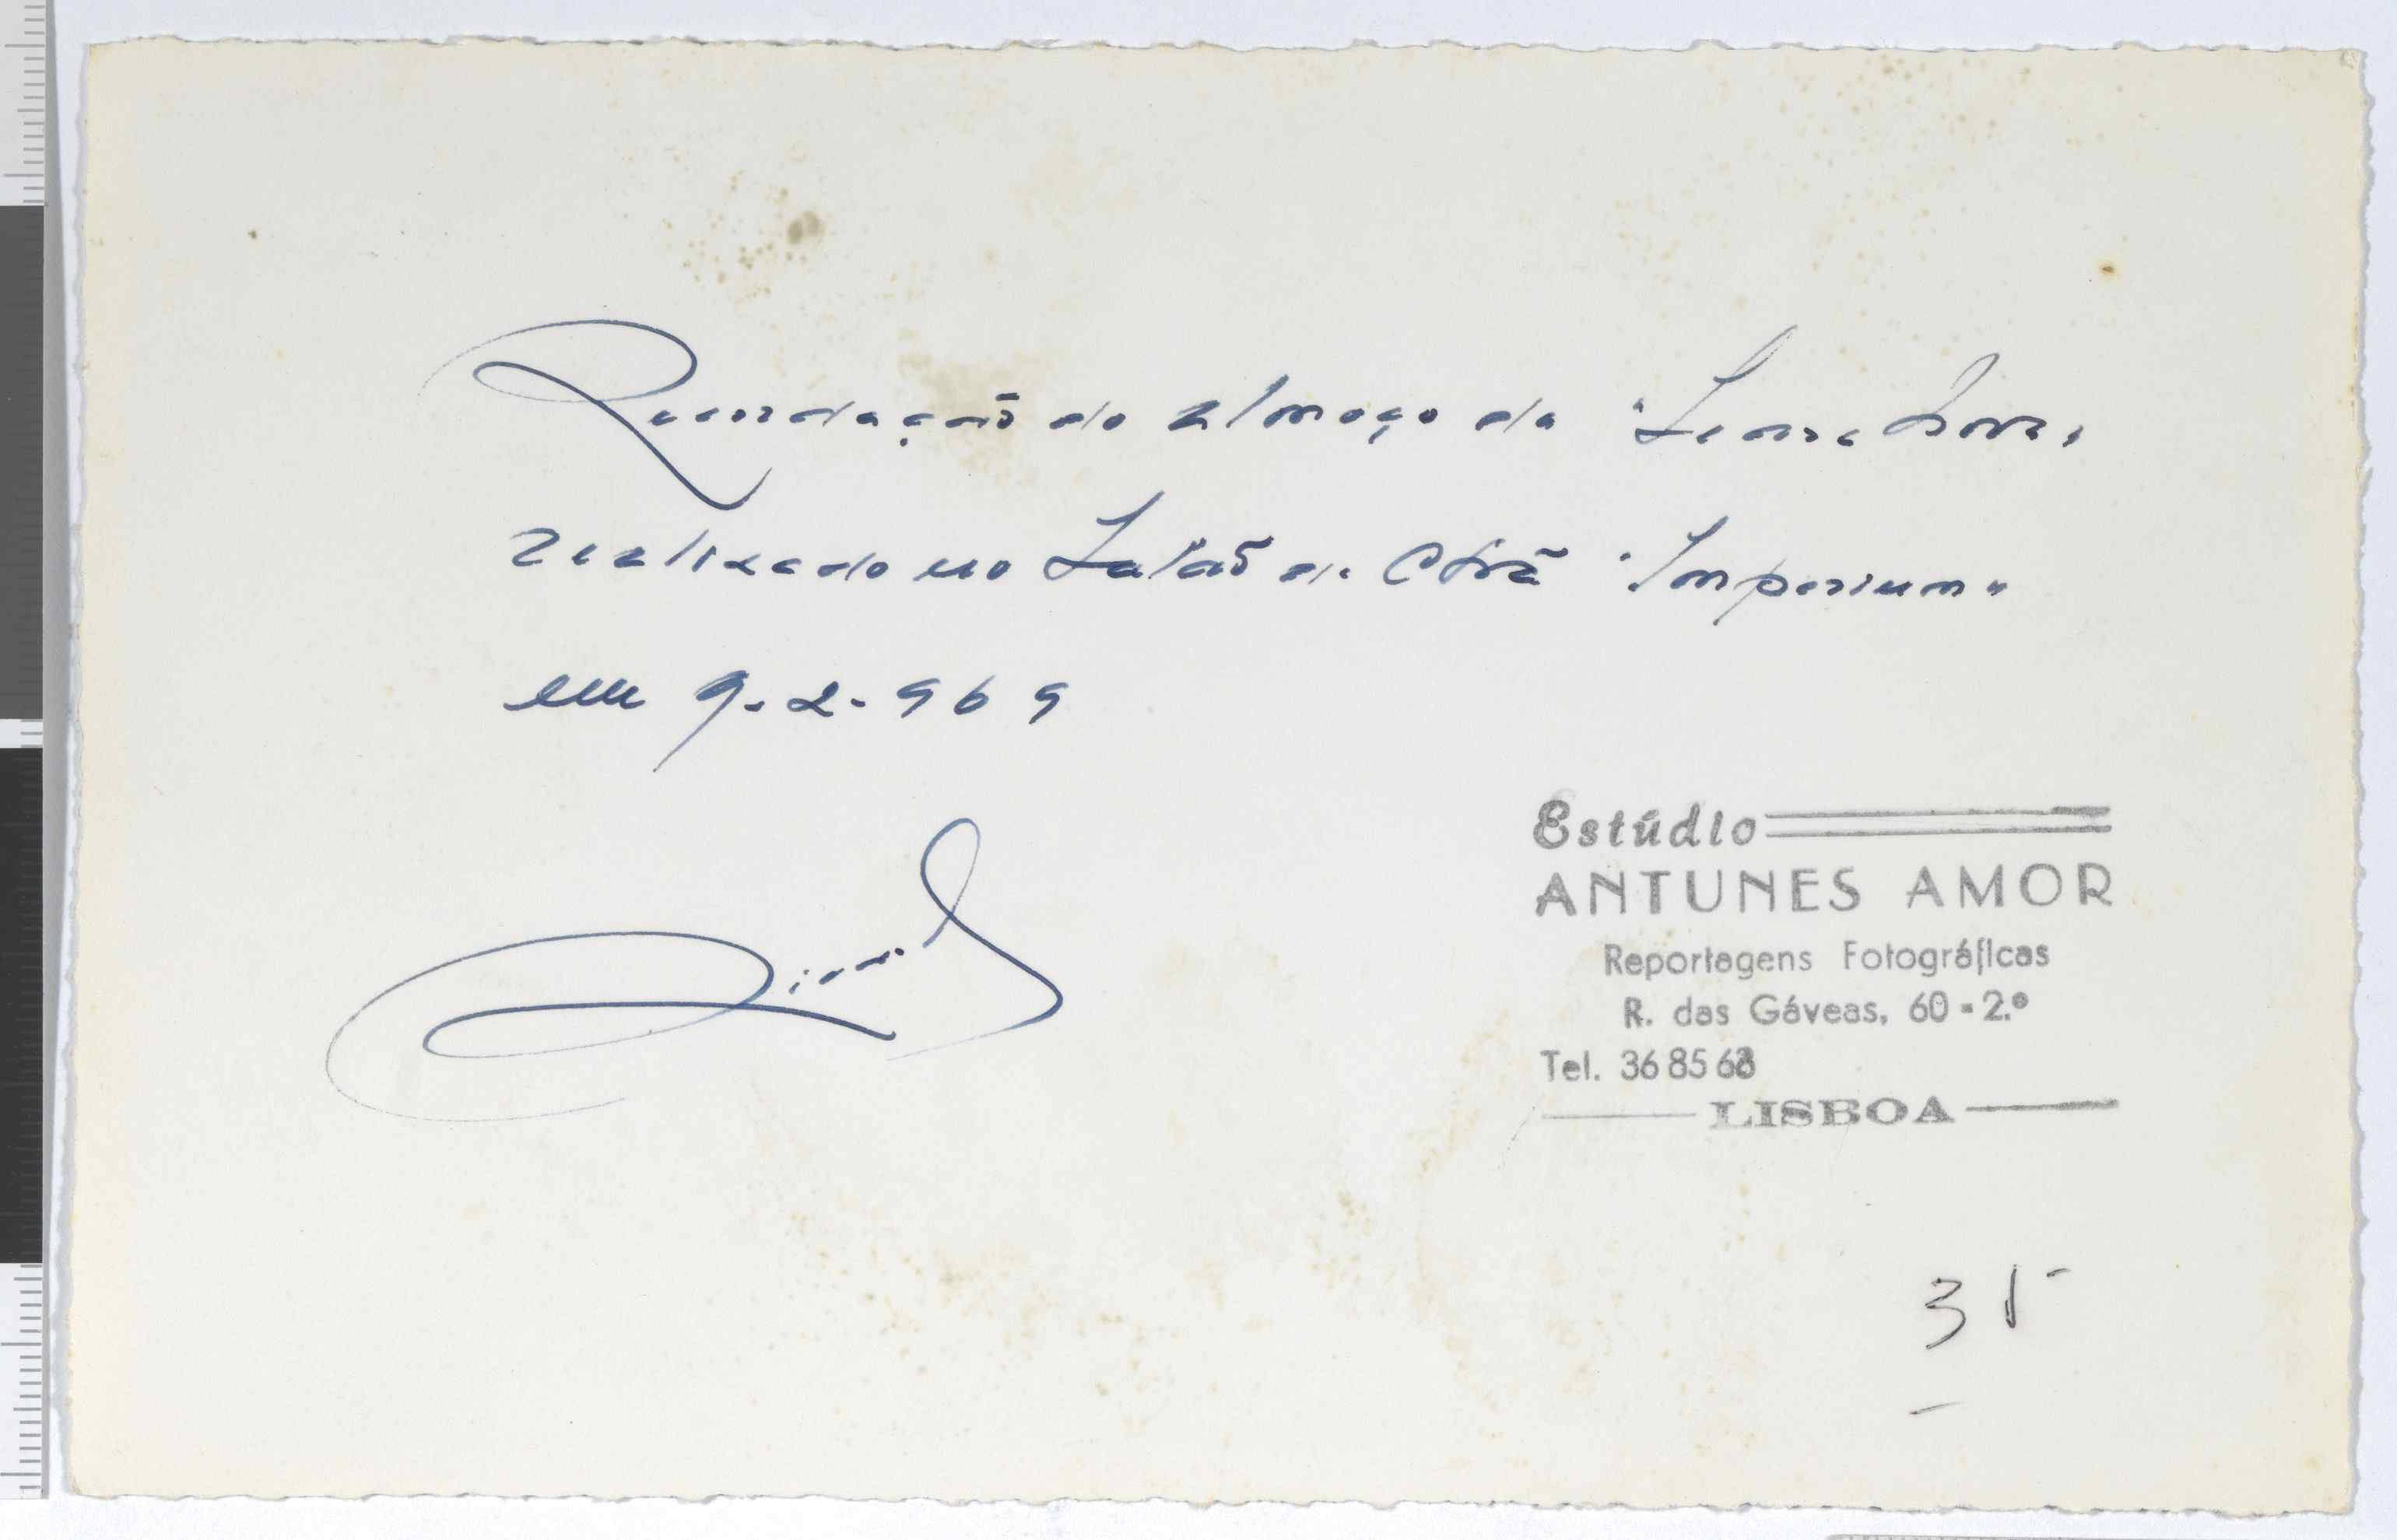 Recordação do almoço da
realizado no Salão de Chá "Imperium"
em 9-2-969
Estúdio
ANTUNES AMOR
Reportagens Fotográficas
R. das Gáveas, 60-2.º
Tel. 36 85 63
LISBOA
35